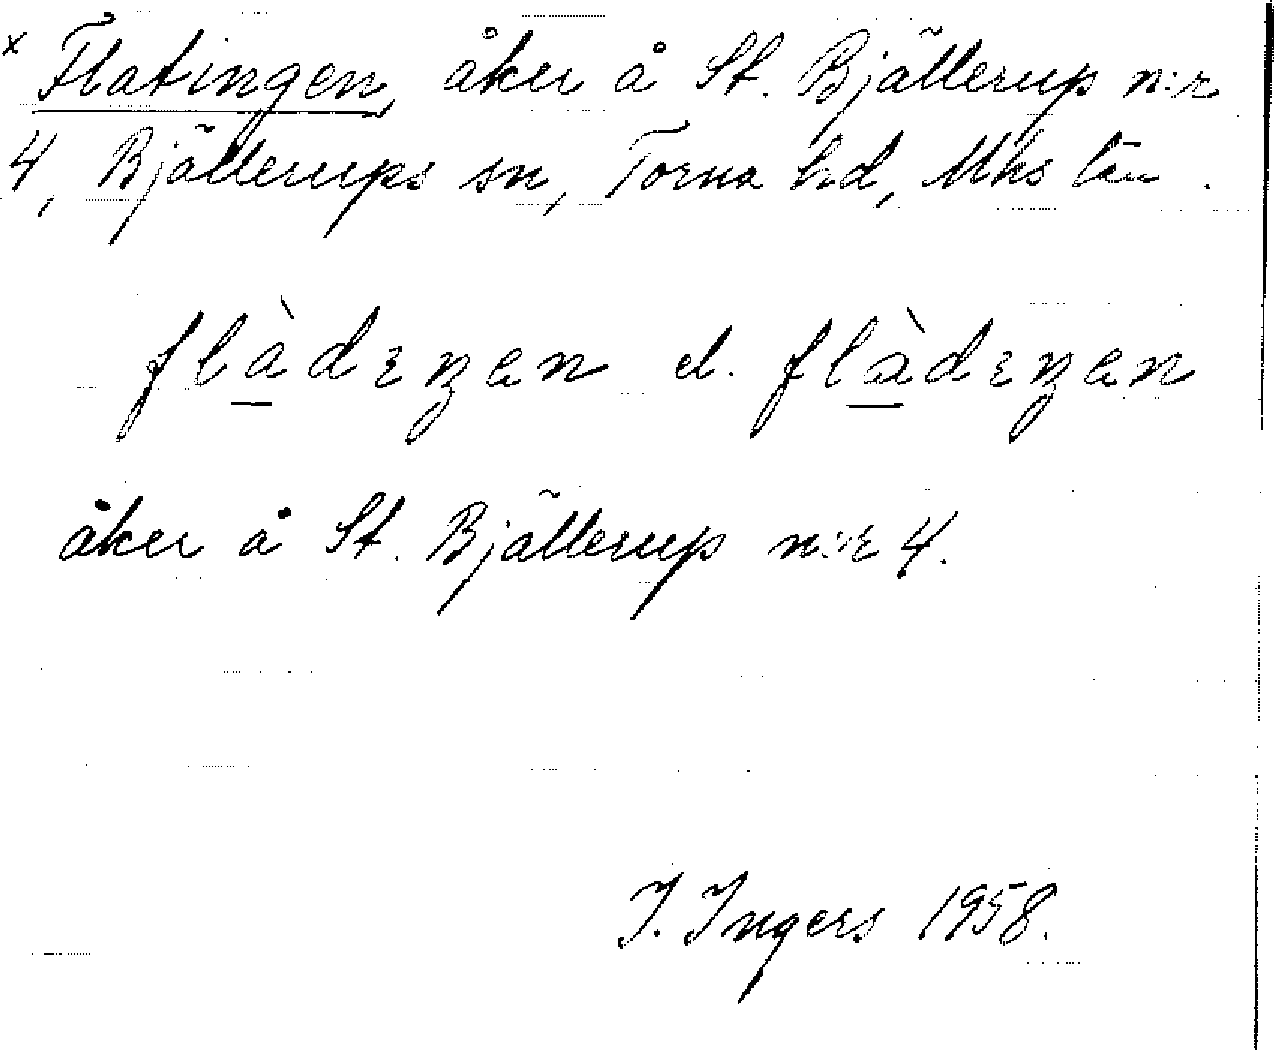 x Flatingen, åker å St. Bjällerup n:r
4, Bjällerups sn, Torna hd, Mhs län.
flàdɛŋen el. flàdɛŋen
åker å St. Bjällerup n:r 4.
I. Ingers 1958.